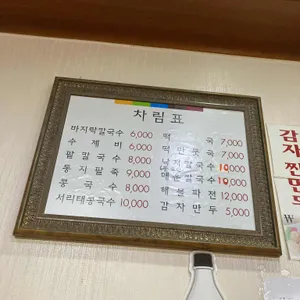 차림표
바지락칼국수 6,000
수제비 6,000
팥칼국수 8,000
동지팥죽 9,000
콩국수 8,000
서리태콩국수 10,000
떡국 7,000
떡만둣국 7,000
낙지칼국수 10,000
칼국수 10,000
해물파전 12,000
감자만두 5,000
감자
찐만두
₩